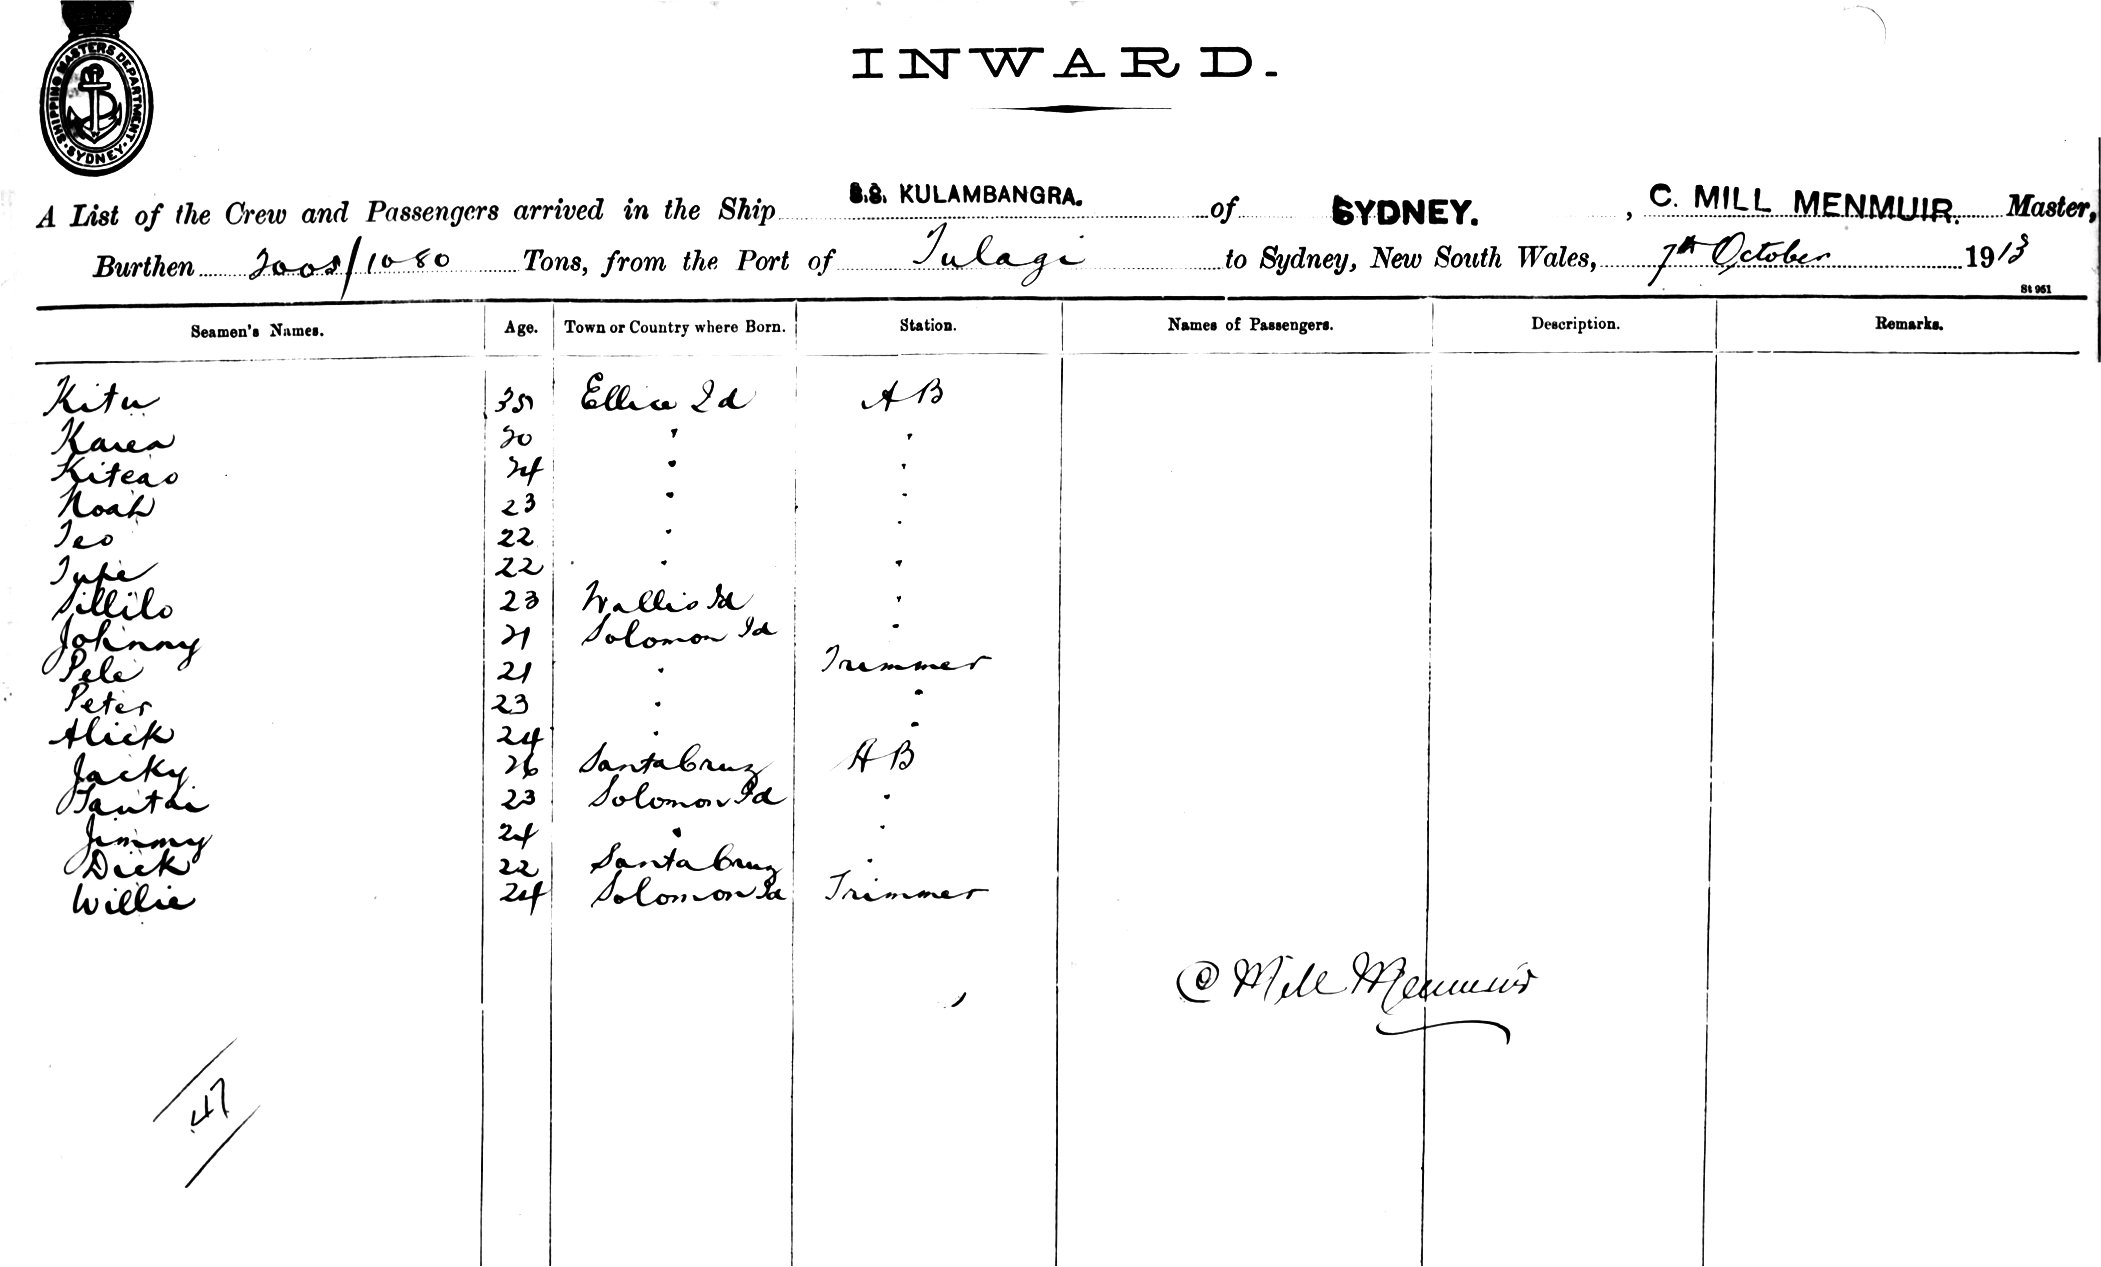 SHIPPING MASTERS DEPARTMENT. SYDNEY.
INWARD.
A List of the Crew and Passengers arrived in the Ship S.S. KULAMBANGRA. of SYDNEY. , C. MILL MENMUIR. Master,
Burthen 2008/1080 Tons, from the Port of Tulagi to Sydney, New South Wales, 7th October 1913
St 961
Seamen's Names. Age. Town or Country where Born. Station. Names of Passengers. Description. Remarks.
Kitu 35 Ellice Id AB
Karea 20 "  "
Kiteao 24 "  "
Noah 23 "  "
Teo 22 "  "
Tupe 22 "  "
Sillilo 23 Wallis Id "
Johnny 21 Solomon Id "
Pele 21 " Trimmer
Peter 23 "  "
Alick 24 "  "
Jacky 26 Santa Cruz AB
Tautai 23 Solomon Id "
Jimmy 24 "  "
Dick 22 Santa Cruz "
Willie 24 Solomon Id Trimmer
C Mill Menmuir
47